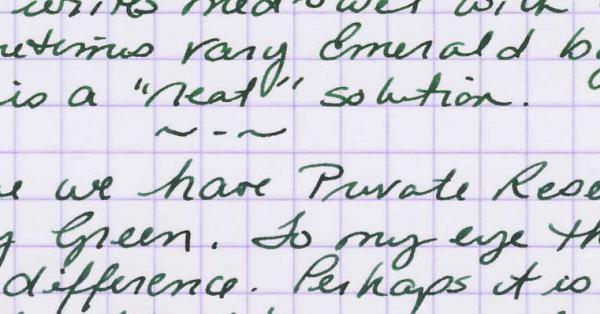 writes med-wet with
vary Emerald
is a "neat" solution.
~ - ~
we have Private Rese
Green. To my eye th
difference. Perhaps it is